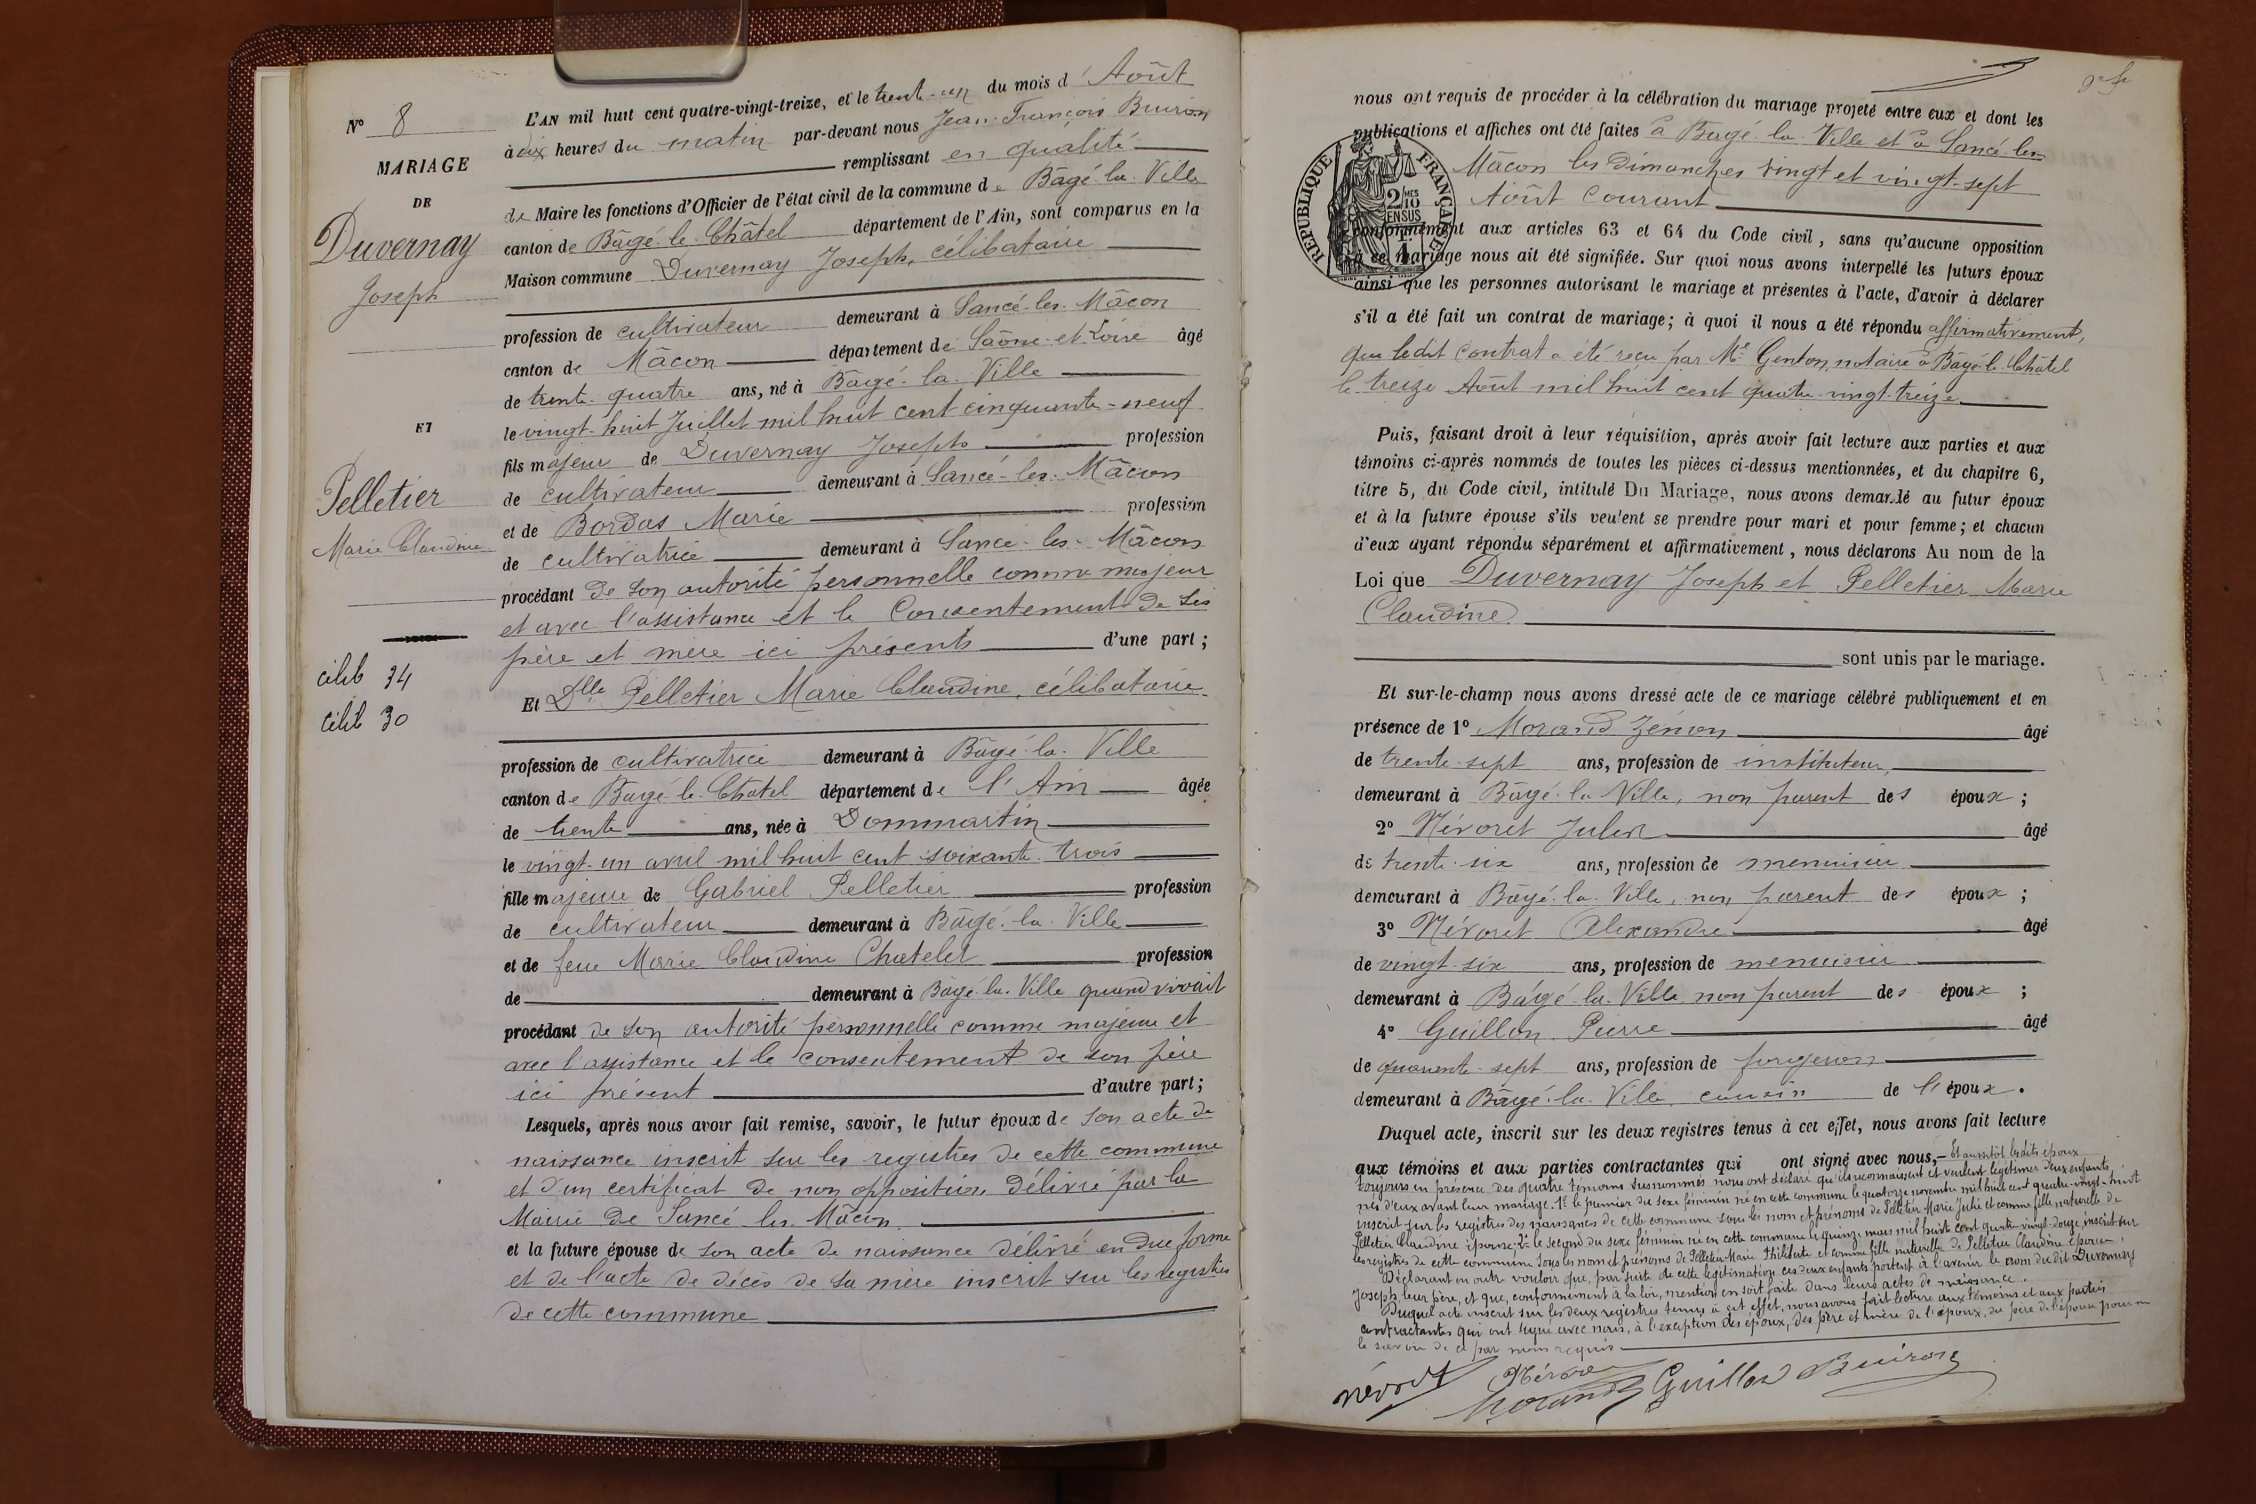 N° 8
MARIAGE
DE
Duvernay
Joseph
ET
Pelletier
Marie Claudine
célib 34
célib 30
L'AN mil huit cent quatre-vingt-treize, et le trente-un du mois d'Août
à dix heures du matin par-devant nous Jean-François Buiron
remplissant en qualité
de Maire les fonctions d'Officier de l'état civil de la commune de Bâgé-la-Ville
canton de Bâgé-le-Châtel département de l'Ain, sont comparus en la
Maison commune Duvernay Joseph, célibataire
profession de cultivateur demeurant à Sancé-les-Mâcon
canton de Mâcon département de Saône-et-Loire âgé
de trente-quatre ans, né à Bâgé-la-Ville
le vingt-huit Juillet mil huit cent cinquante-neuf
fils majeur de Duvernay Joseph profession
de cultivateur demeurant à Sancé-les-Mâcon
et de Bordas Marie profession
de cultivatrice demeurant à Sancé-les-Mâcon
procédant de son autorité personnelle comme majeur
et avec l'assistance et le Consentement de ses
père et mère ici présents d'une part ;
Et Dlle Pelletier Marie Claudine, célibataire
profession de cultivatrice demeurant à Bâgé-la-Ville
canton de Bâgé-le-Châtel département de l'Ain âgée
de trente ans, née à Dommartin
le vingt-un avril mil huit cent soixante-trois
fille majeure de Gabriel Pelletier profession
de cultivateur demeurant à Bâgé-la-Ville
et de feue Marie Claudine Chatelet profession
de demeurant à Bâgé-la-Ville quand vivait
procédant de son autorité personnelle comme majeure et
avec l'assistance et le consentement de son père
ici présent d'autre part ;
Lesquels, après nous avoir fait remise, savoir, le futur époux de son acte de
naissance inscrit sur les registres de cette commune
et d'un certificat de non opposition délivré par la
Mairie de Sancé-les-Mâcon
et la future épouse de son acte de naissance délivré en due forme
et de l'acte de décès de sa mère inscrit sur les registres
de cette commune
nous ont requis de procéder à la célébration du mariage projeté entre eux et dont les
publications et affiches ont été faites à Bâgé-la-Ville et à Sancé-les-
Mâcon les dimanches vingt et vingt-sept
Août courant
REPUBLIQUE FRANÇAISE
2/10 EN SUS
conformément aux articles 63 et 64 du Code civil, sans qu'aucune opposition
à ce mariage nous ait été signifiée. Sur quoi nous avons interpellé les futurs époux
ainsi que les personnes autorisant le mariage et présentes à l'acte, d'avoir à déclarer
s'il a été fait un contrat de mariage ; à quoi il nous a été répondu affirmativement,
que ledit contrat a été reçu par Me Genton, notaire à Bâgé-le-Châtel
le treize Août mil huit cent quatre-vingt-treize
Puis, faisant droit à leur réquisition, après avoir fait lecture aux parties et aux
témoins ci-après nommés de toutes les pièces ci-dessus mentionnées, et du chapitre 6,
titre 5, du Code civil, intitulé Du Mariage, nous avons demandé au futur époux
et à la future épouse s'ils veulent se prendre pour mari et pour femme ; et chacun
d'eux ayant répondu séparément et affirmativement, nous déclarons Au nom de la
Loi que Duvernay Joseph et Pelletier Marie
Claudine
sont unis par le mariage.
Et sur-le-champ nous avons dressé acte de ce mariage célébré publiquement et en
présence de 1° Morand Zénon âgé
de trente-sept ans, profession de instituteur,
demeurant à Bâgé-la-Ville, non parent des époux ;
2° Névoret Julien âgé
de trente-six ans, profession de menuisier
demeurant à Bâgé-la-Ville, non parent des époux ;
3° Névoret Alexandre âgé
de vingt-six ans, profession de menuisier
demeurant à Bâgé-la-Ville non parent des époux ;
4° Guillon Pierre âgé
de quarante-sept ans, profession de forgeron
demeurant à Bâgé-la-Ville cousin de l'époux.
Duquel acte, inscrit sur les deux registres tenus à cet effet, nous avons fait lecture
aux témoins et aux parties contractantes qui ont signé avec nous, - Et aussitôt lesdits époux
toujours en présence des quatre témoins susnommés nous ont déclaré qu'ils reconnaissent et veulent légitimer deux enfants
nés d'eux avant leur mariage. 1° le premier du sexe féminin né en cette commune le quatorze novembre mil huit cent quatre-vingt-huit
inscrit sur les registres des naissances de cette commune sous les nom et prénoms de Pelletier Marie Julie et comme fille naturelle de
Pelletier Claudine épouse. 2° le second du sexe féminin né en cette commune le quinze mars mil huit cent quatre-vingt-douze, inscrit sur
les registres de cette commune sous les nom et prénoms de Pelletier Marie Philiberte et comme fille naturelle de Pelletier Claudine épouse.
Déclarant en outre vouloir que, par suite de cette légitimation ces deux enfants portent à l'avenir le nom dudit Duvernay
Joseph leur père, et que, conformément à la loi, mention en soit faite dans leurs actes de naissance.
Duquel acte inscrit sur les deux registres tenus à cet effet, nous avons fait lecture aux témoins et aux parties
contractantes qui ont signé avec nous, à l'exception des époux, des père et mère de l'époux, du père de l'épouse pour ne
le savoir de ce par nous requis
névoret Névoret
Morand Guillon Buiron